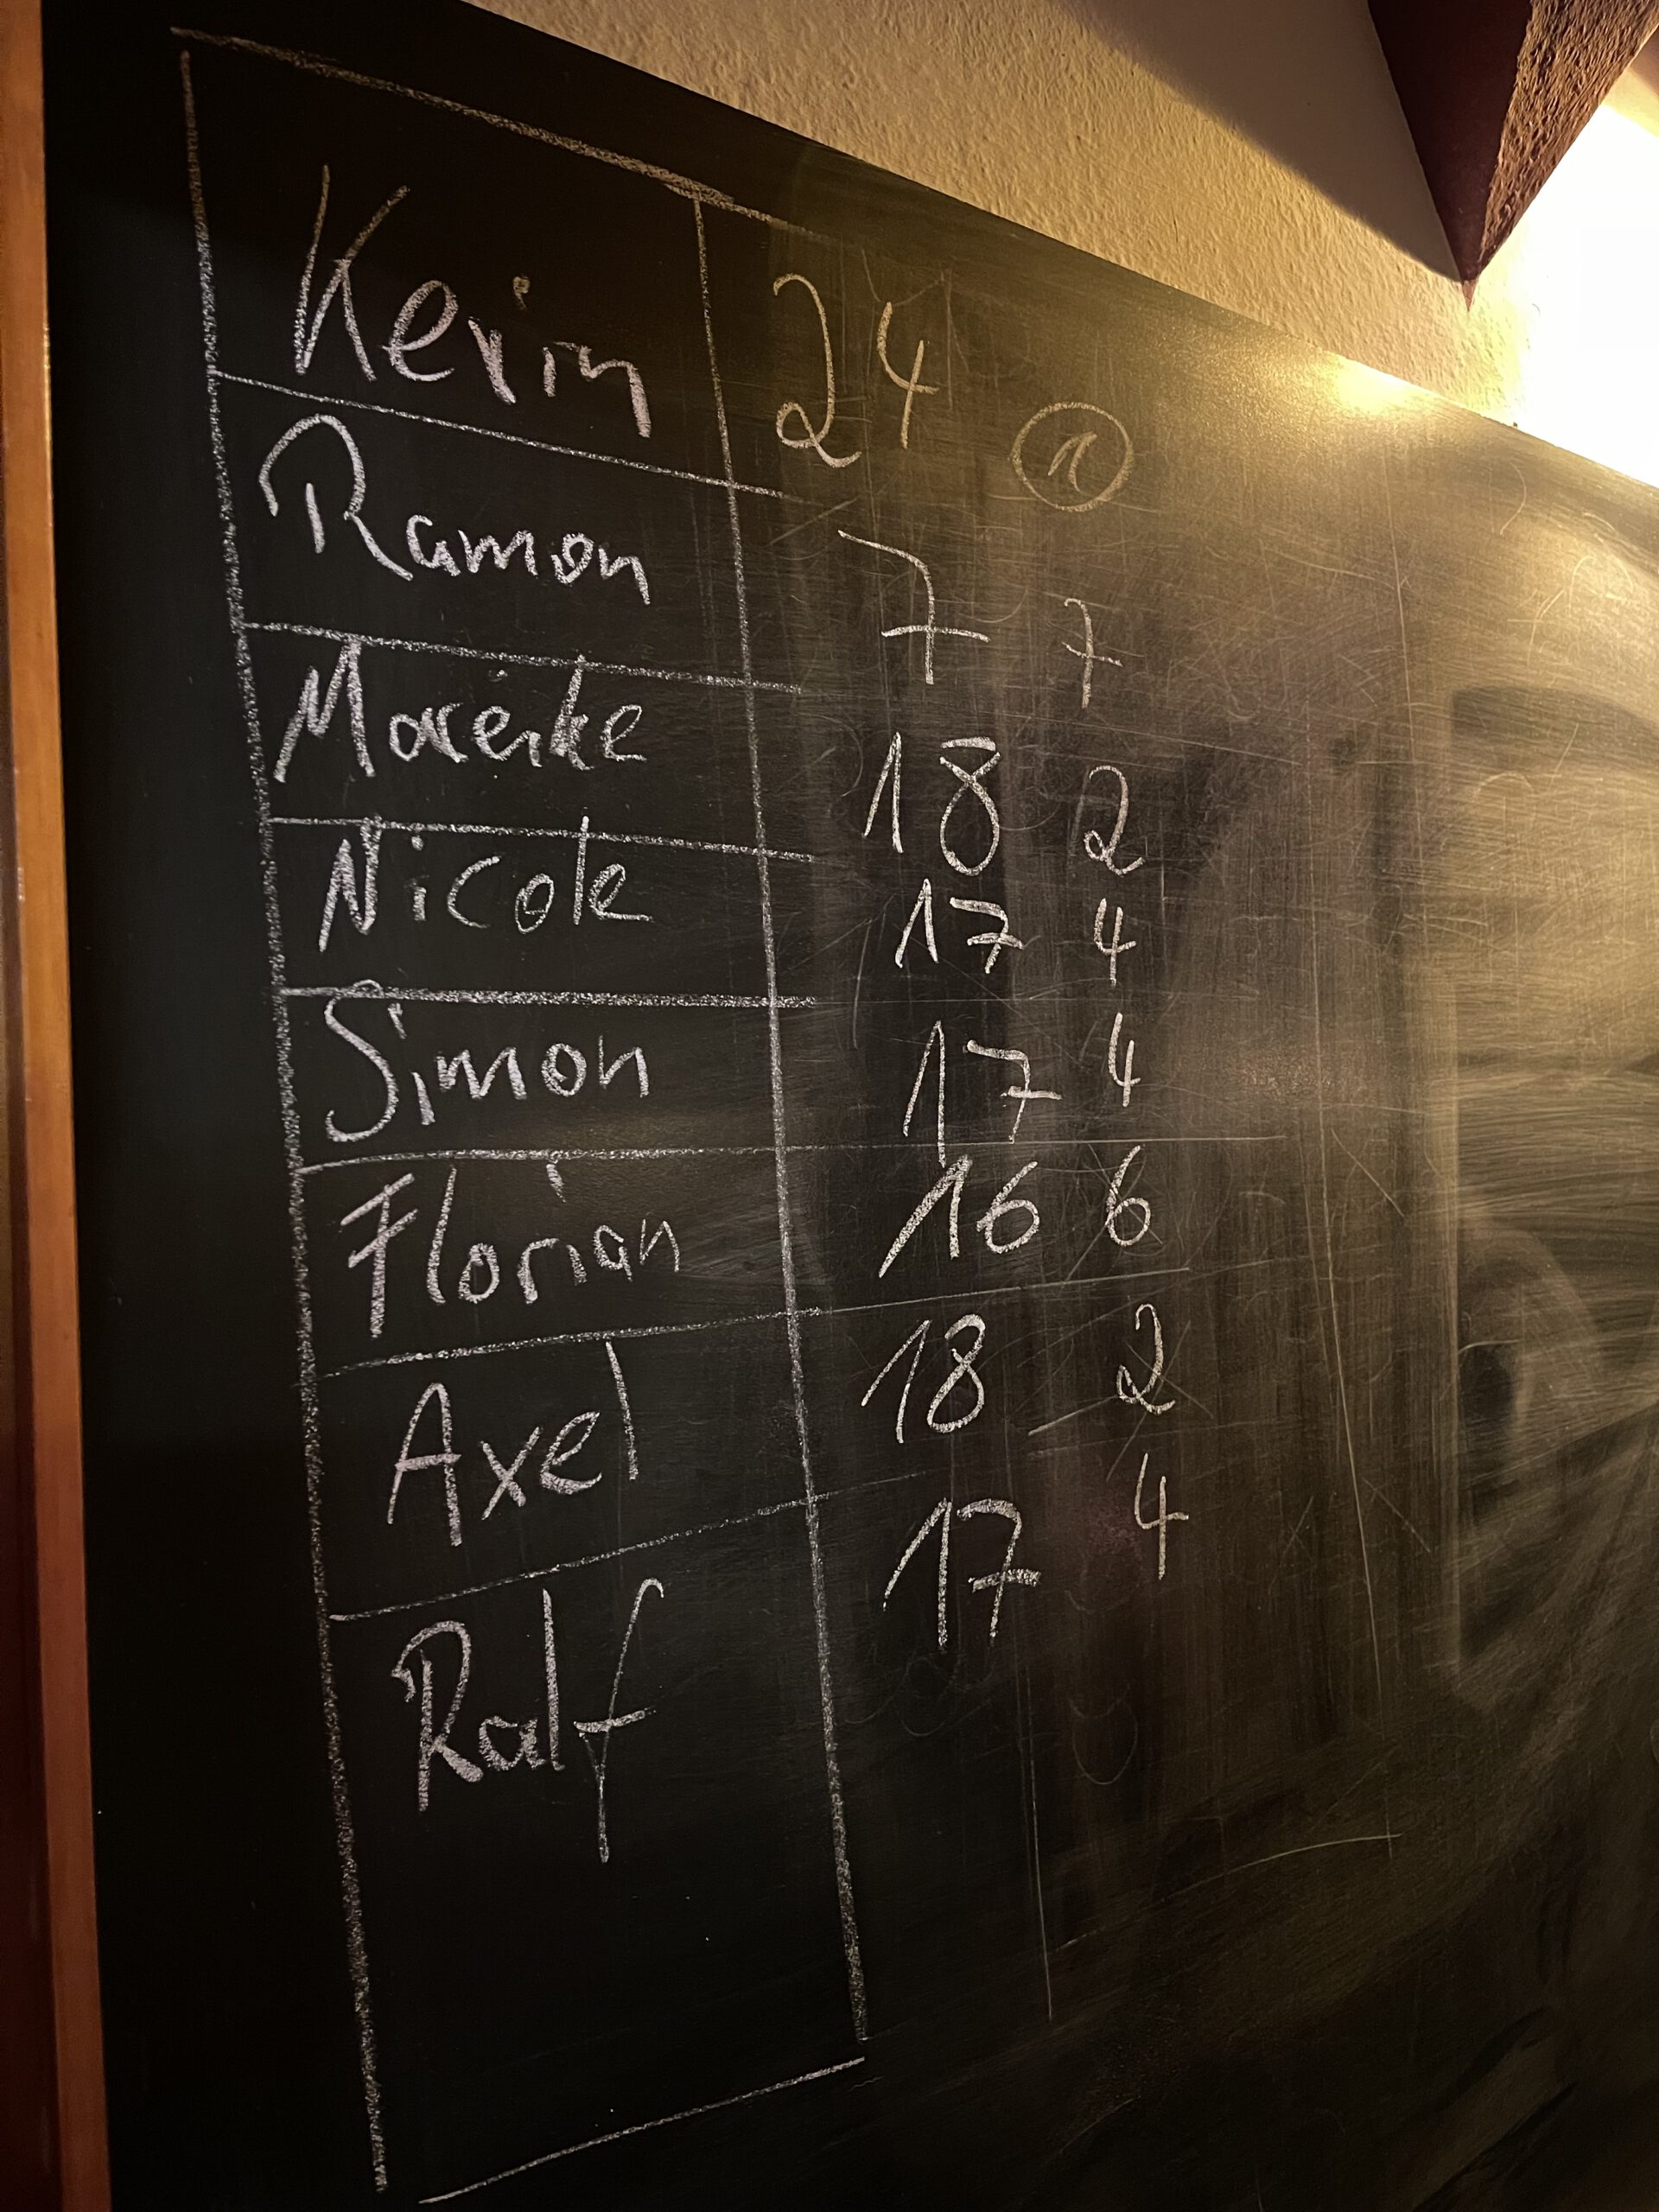 Kevin 24 1
Ramon 7 7
Mareike 18 2
Nicole 17 4
Simon 17 4
Florian 16 6
Axel 18 2
Ralf 17 4